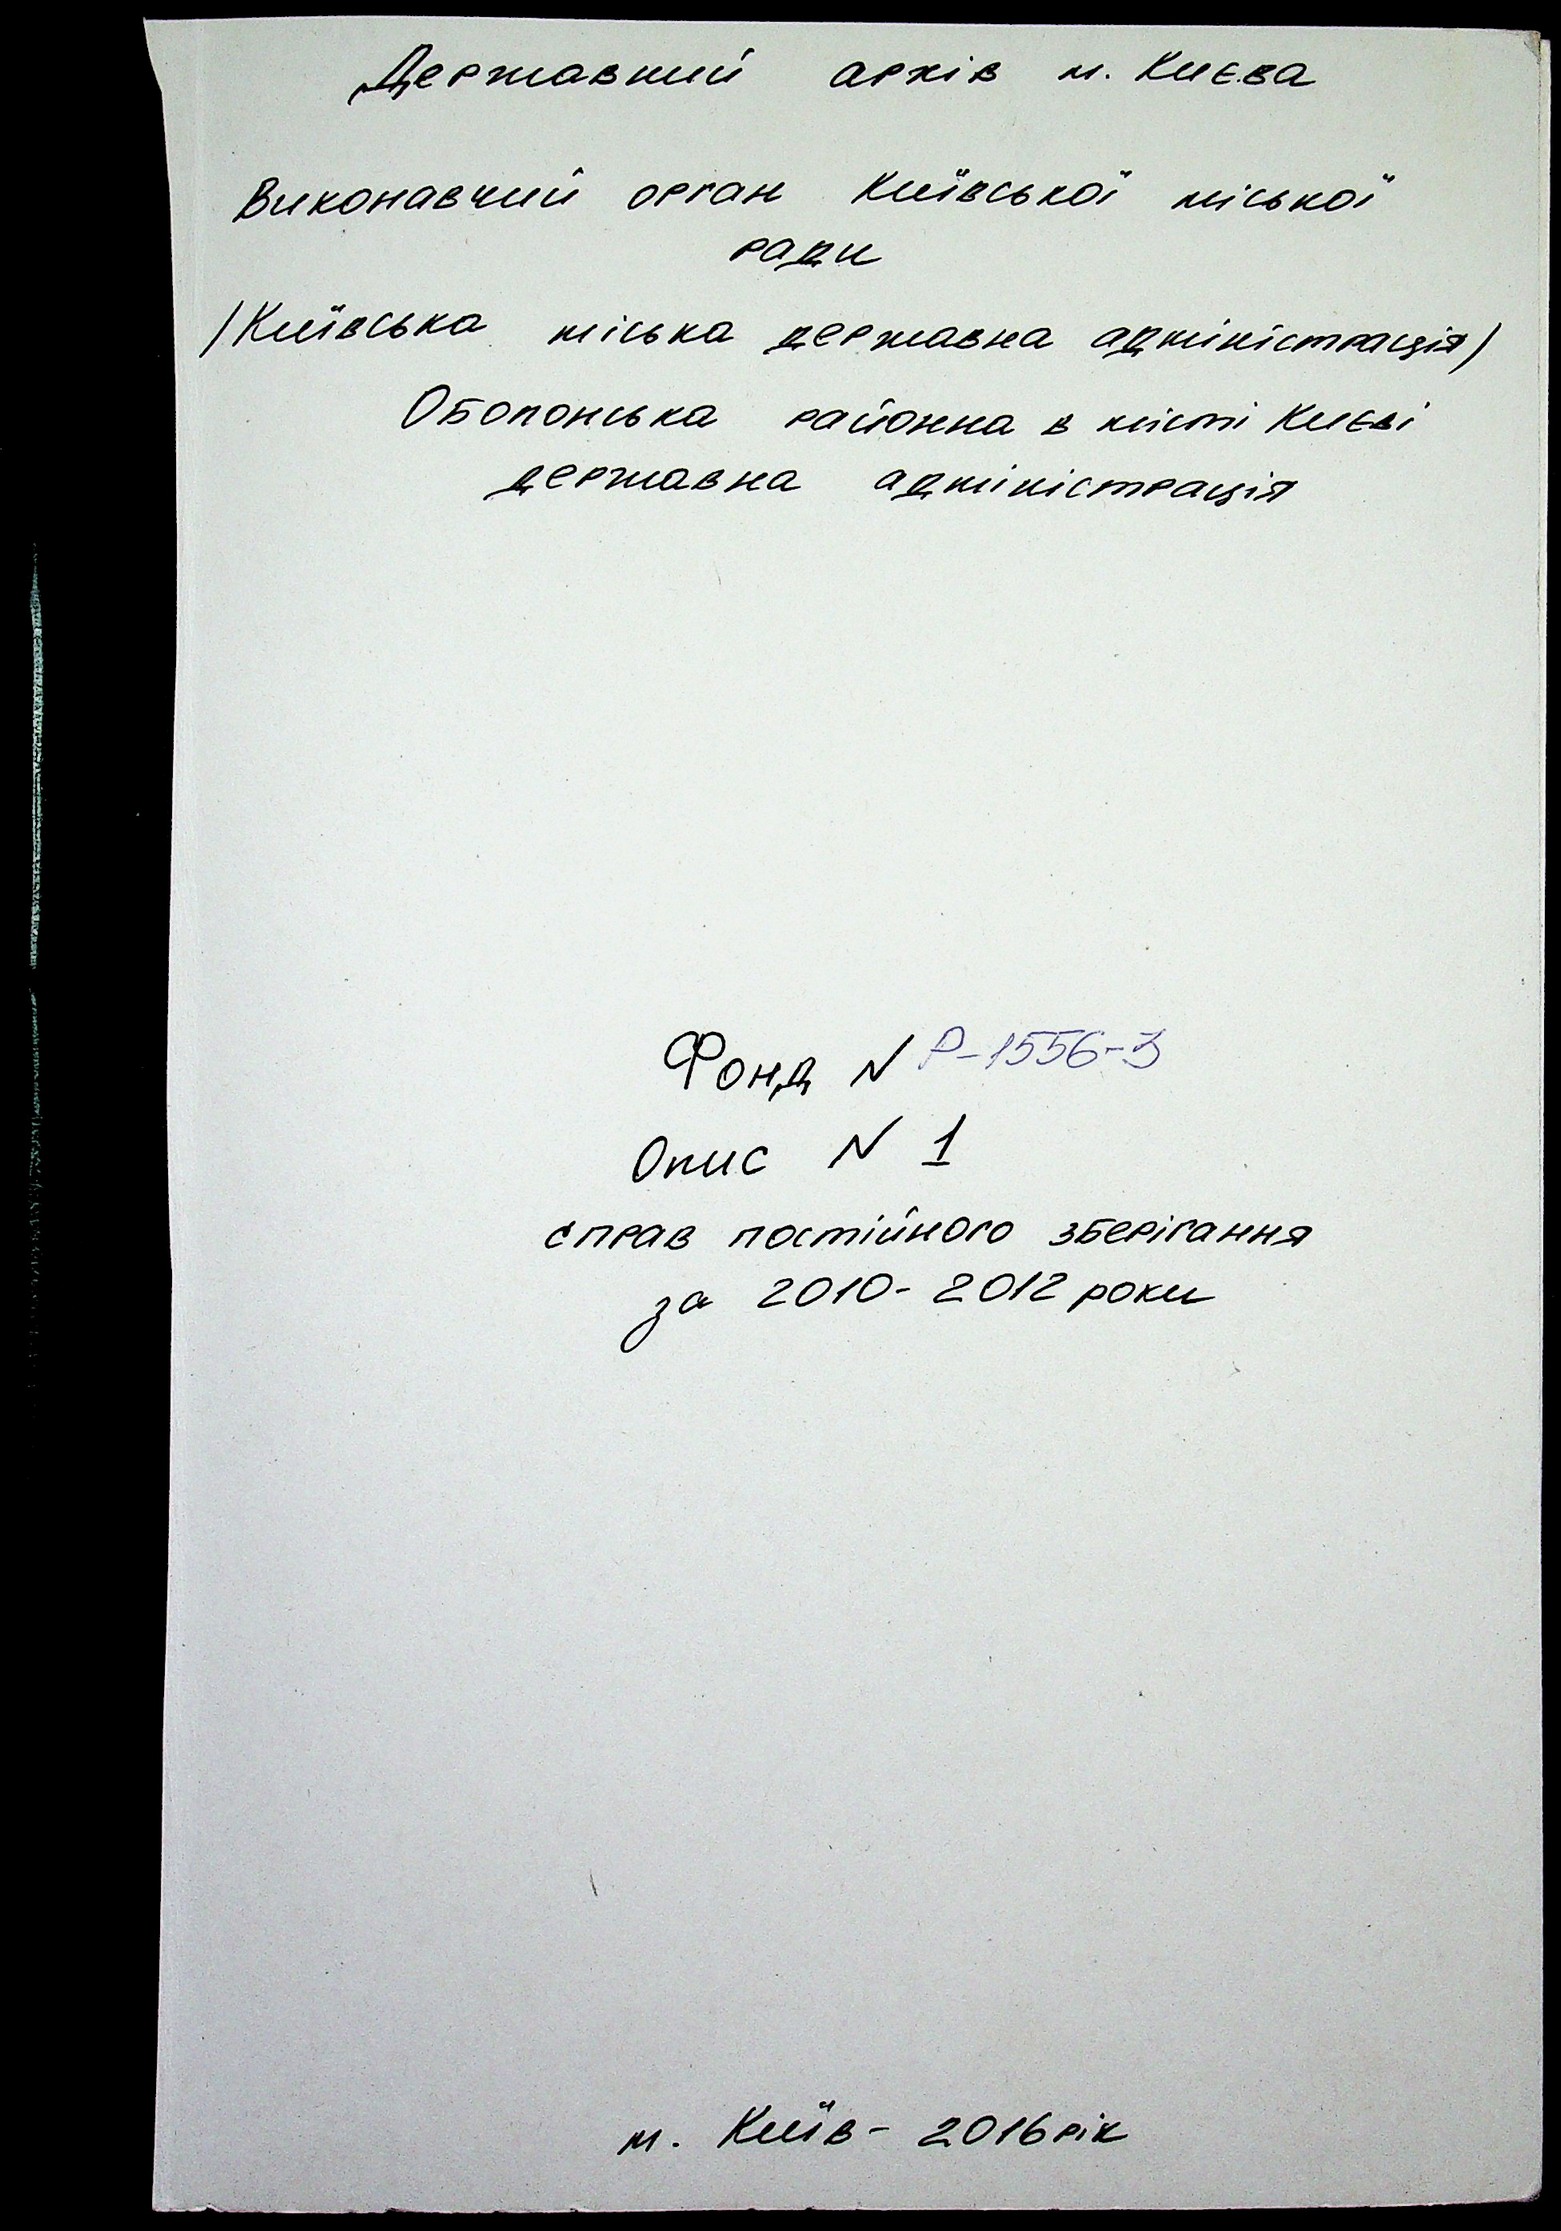 Державний архів м. Києва
Виконавчий орган Київської міської
ради
/Київська міська державна адміністрація/
Оболонська районна в місті Києві
державна адміністрація
Фонд N Р-1556-З
Опис N 1
справ постійного зберігання
за 2010-2012 роки
м. Київ - 2016 рік